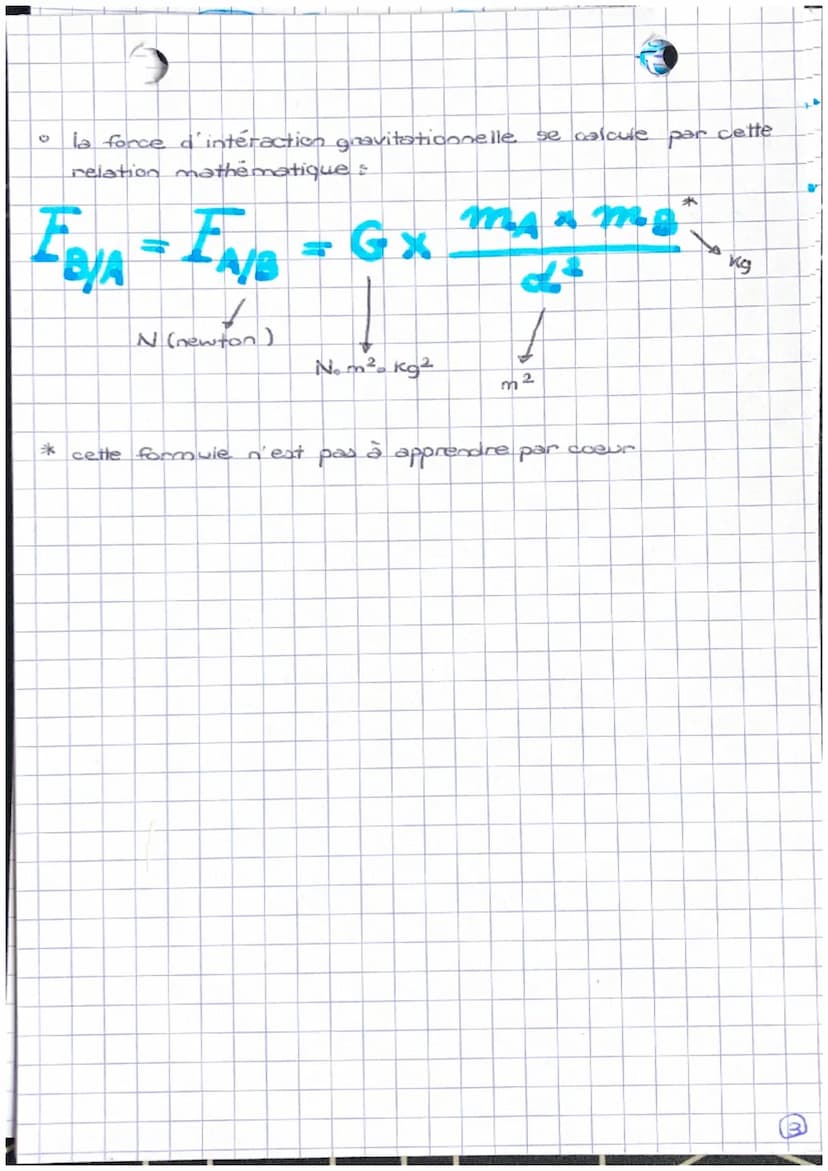 ° la force d'intéraction gravitationnelle se calcule par cette
relation mathématique :
F_B/A = F_A/B = G x (m_A x m_B)/d² *
kg
N (newton)
N. m². kg²
m²
* cette formule n'est pas à apprendre par coeur
3